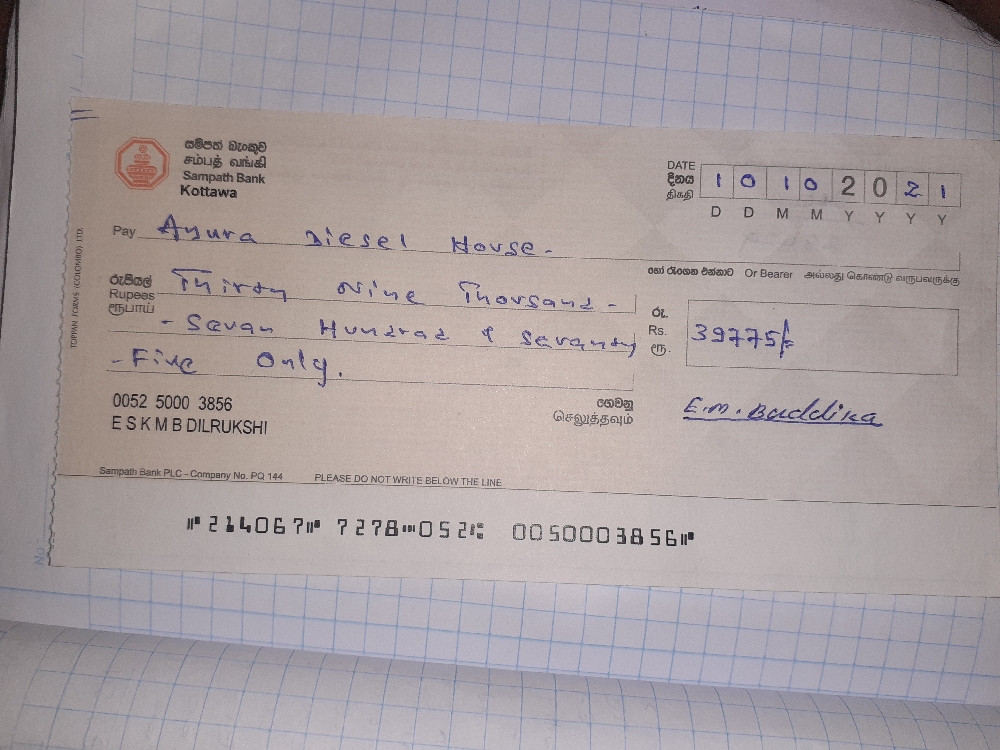 සම්පත් බැංකුව
சம்பத் வங்கி
Sampath Bank
Kottawa
DATE
දිනය
திகதி
1 0 1 0 2 0 2 1
D D M M Y Y Y Y
Pay Ayura Diesel House -
හෝ රැගෙන එන්නාට Or Bearer அல்லது கொண்டு வருபவருக்கு
රුපියල්
Rupees
ரூபாய்
Thirty Nine Thousand -
- Sevan Hundrad & Sevanty
- Five Only.
රු.
Rs.
ரூ.
39775/=
0052 5000 3856
E S K M B DILRUKSHI
ගෙවනු
செலுத்தவும்
E.M. Buddika
Sampath Bank PLC - Company No. PQ 144 PLEASE DO NOT WRITE BELOW THE LINE
⑈214067⑈ 7278⑉052⑆ 0050003856⑈
TOPPAN FORMS (COLOMBO) LTD.
No